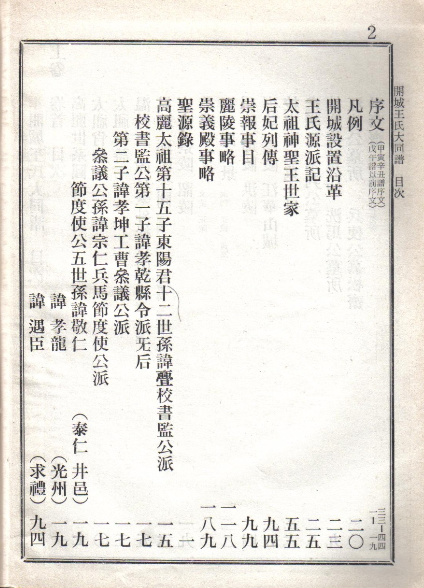 2
開城王氏大同譜 目次
序文 (甲寅辛丑譜序文) 三三-四四
(戊午譜以前序文) 一-一九
凡例 二〇
開城設置沿革 二三
王氏源派記 二五
太祖神聖王世家 五五
后妃列傳 九四
崇報事目 九九
麗陵事略 一一八
崇義殿事略 一八九
聖源錄
高麗太祖第十五子東陽君十二世孫諱亹校書監公派 一五
校書監公第一子諱孝乾縣令派无后 一七
第二子諱孝坤工曹叅議公派 一七
叅議公孫諱宗仁兵馬節度使公派 一七
節度使公五世孫諱敬仁 (泰仁 井邑) 一九
諱孝龍 (光州) 一九
諱遇臣 (求禮) 九四